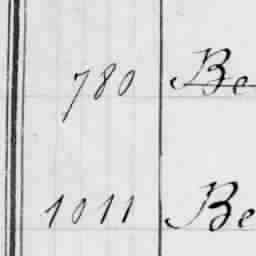 780 Be
1011 Be